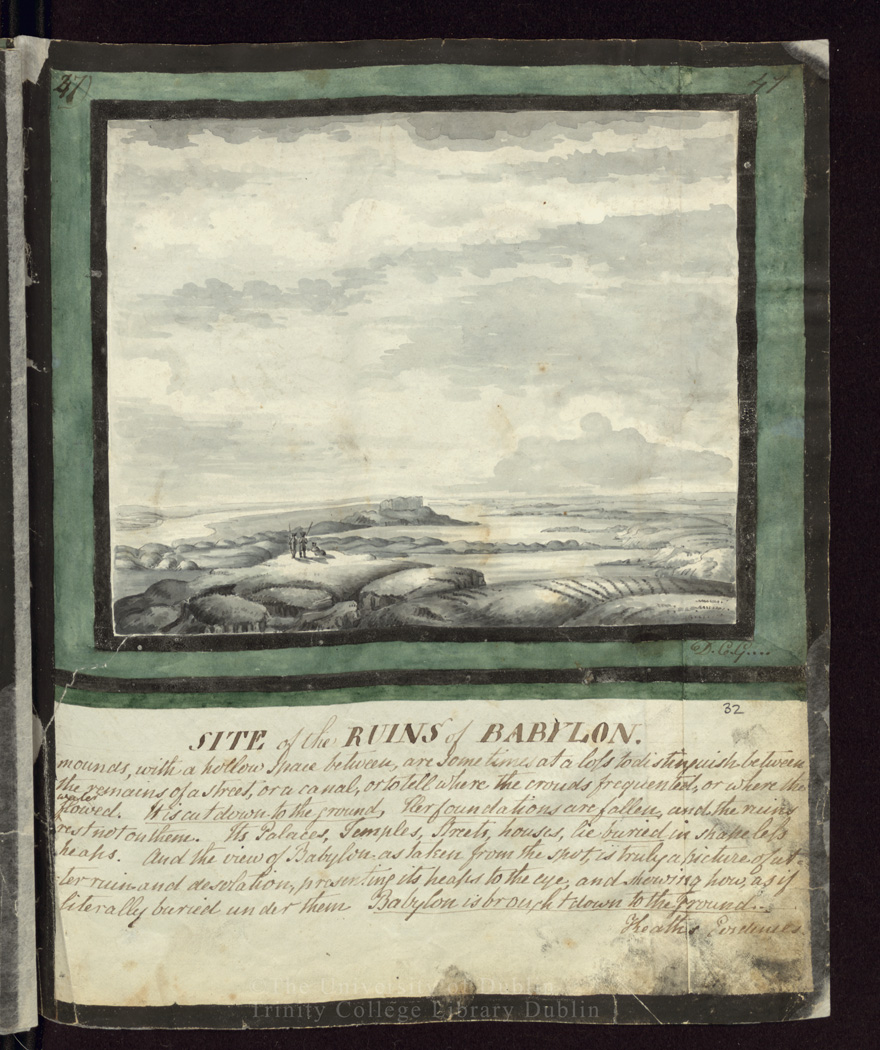 47
47
D. C. G....
32
SITE of the RUINS of BABYLON.
mounds, with a hollow space between, are sometimes at a loss to distinguish between
the remains of a street, or a canal, or to tell where the crowds frequented, or where the
water
flowed. It is cut down to the ground, Her foundations are fallen, and the ruins
rest not on them. Its Palaces, Temples, Streets, houses, lie buried in shapeless
heaps. And the view of Babylon as taken from the spot, is truly a picture of ut-
ter ruin and desolation, presenting its heaps to the eye, and shewing how, as if
literally buried under them Babylon is brought down to the ground.
Keath's Evidences
© The University of Dublin
Trinity College Library Dublin